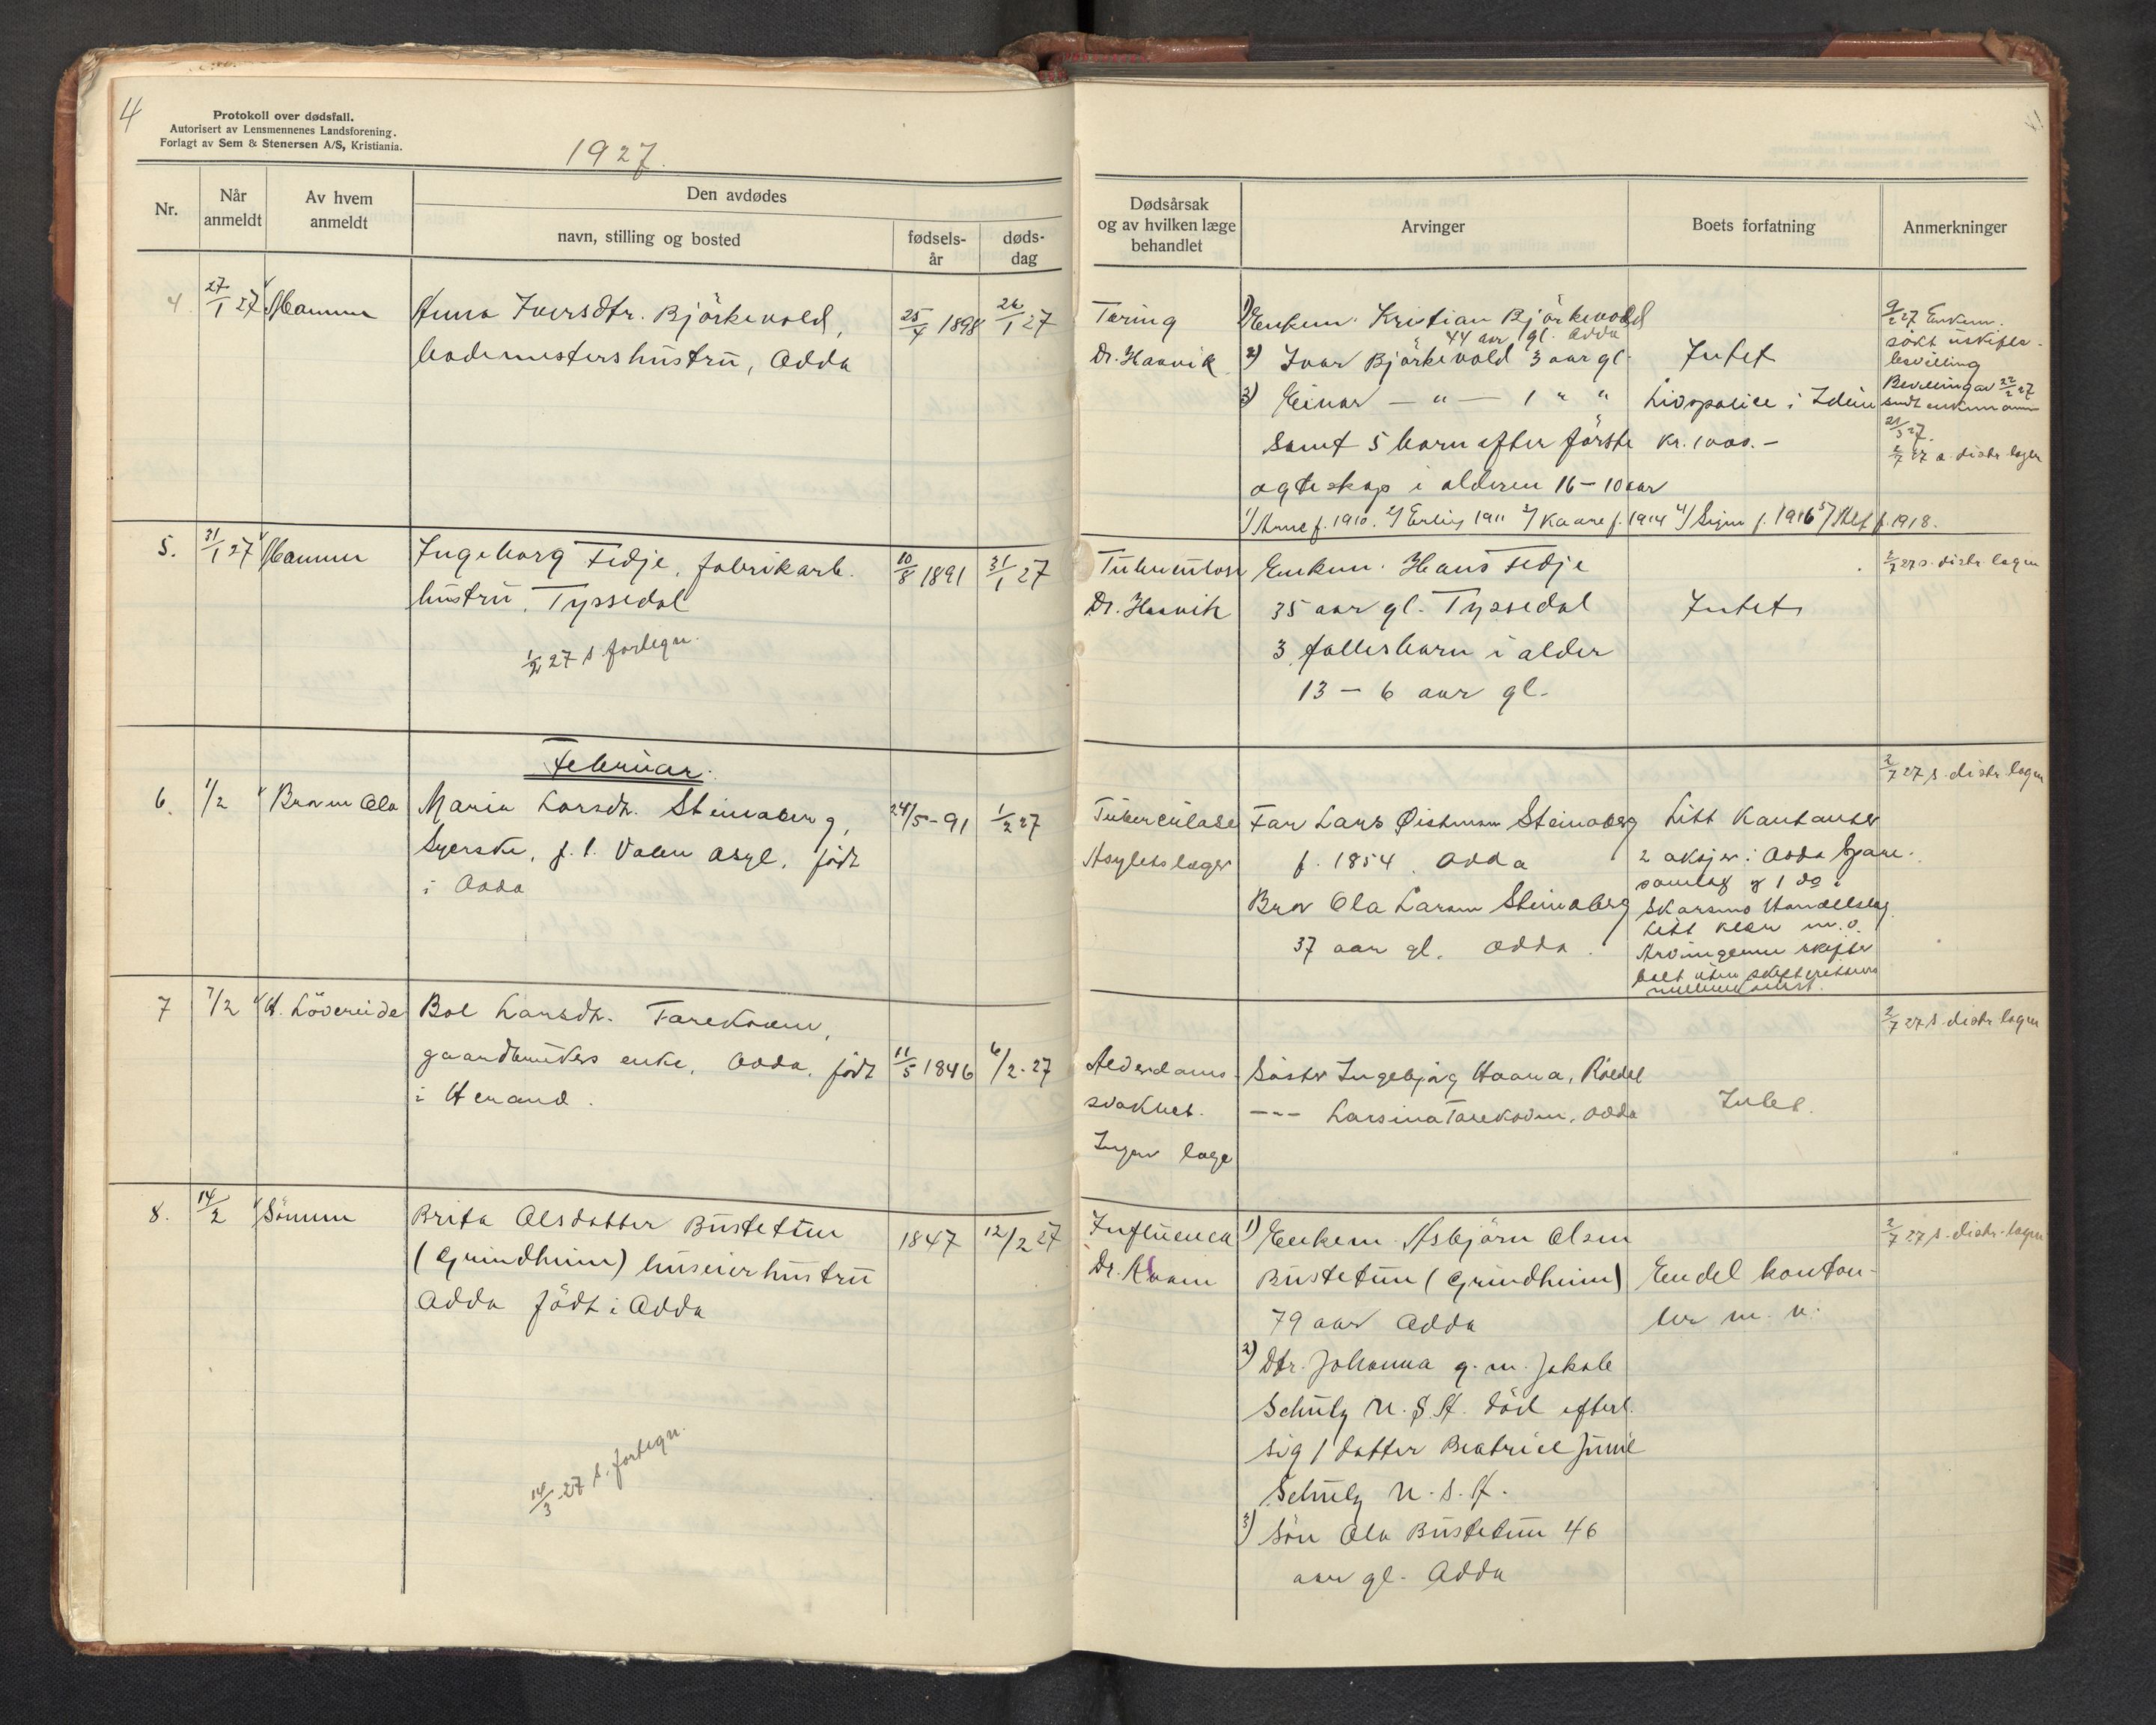 4
Protokoll over dødsfall.
Autorisert av Lensmennenes Landsforening.
Forlagt av Sem & Stenersen A/S, Kristiania.
1927.
Nr.
Når anmeldt
Av hvem anmeldt
Den avdødes
navn, stilling og bosted
fødsels-år
døds-dag
Dødsårsak
og av hvilken læge
behandlet
Arvinger
Boets forfatning
Anmerkninger
4. 27/1 27 Mannen Anna Iversdtr. Björkevold, 25/4 1898 26/1 27
bademestershustru, Odda
Tæring
Dr. Haavik
1) Enkem. Kristian Björkevold
44 aar gl. Odda
2) Ivar Björkevold 3 aar gl.
3) Einar — " — 1 " "
Samt 5 barn efter förste
ægteskap i alderen 16 – 10 aar
1) Arne f. 1910. 2) Erling 1911 3) Kaare f. 1914 4) Signe f. 1916 5) Alf f. 1918.
Intet
Livspolice i Idun
kr. 1000.-
9/2 27 Enkem.
sökt uskifte-
bevilling
Bevilling av 22/2 27
sendt enkemannen
21/3 27.
2/7 27 s. distr. lægen
5. 31/1 27 Mannen Ingeborg Fedje, fabrikarb. 10/8 1891 31/1 27
hustru, Tyssedal
1/2 27 s. fortegn.
Tuberkulose
Dr. Haavik
Enkem. Hans Fedje
35 aar gl. Tyssedal
3 fællesbarn i alder
13 – 6 aar gl.
Intet
2/7 27 s. distr. lægen
Februar.
6. 1/2 Broren Ola Maria Larsdtr. Steinaberg, 24/5-91 1/2 27
Syerske, f. t. Valen asyl, födt
i Odda
Tuberculose
Asylets læger
Far Lars Østensen Steinaberg
f. 1854. Odda
Bror Ola Larsen Steinaberg
37 aar gl. Odda.
Litt kontanter
2 aksjer i Odda Spare-
samlag og 1 do i
Skarsmo Handelslag
Litt klær m.v.
Arvingerne skifter
helt uten skifterettens
mellemkomst.
2/7 27 s. distr. lægen
7 7/2 H. Lövereide Bol Larsdtr. Tarekvam,
gaardbrukers enke, Odda, födt 11/5 1846 6/2-27
i Herand.
Alderdoms-
svakhet.
Ingen læge
Söster Ingebjörg Haana, Röldal
--- Larsina Tarekvam, Odda
Intet.
2/7 27 s. distr. lægen
8. 14/2 Sönnen Brita Olsdatter Bustetun 1847 12/2 27
(Grindheim) huseierhustru
Odda födt i Odda
14/3-27 s. fortegn.
Influenca
Dr. Kvam
1) Enkem. Asbjörn Olsen
Bustetun (Grindheim)
79 aar Odda
2) Dtr. Johanna g.m. Jakob
Schulz U.S.A. död efterl.
sig 1 datter Beatrice Junie
Schulz U.S.A.
3) Sön Ola Bustetun 46
aar gl. Odda
Endel kontan-
ter m. v.
2/7 27 s. distr. lægen